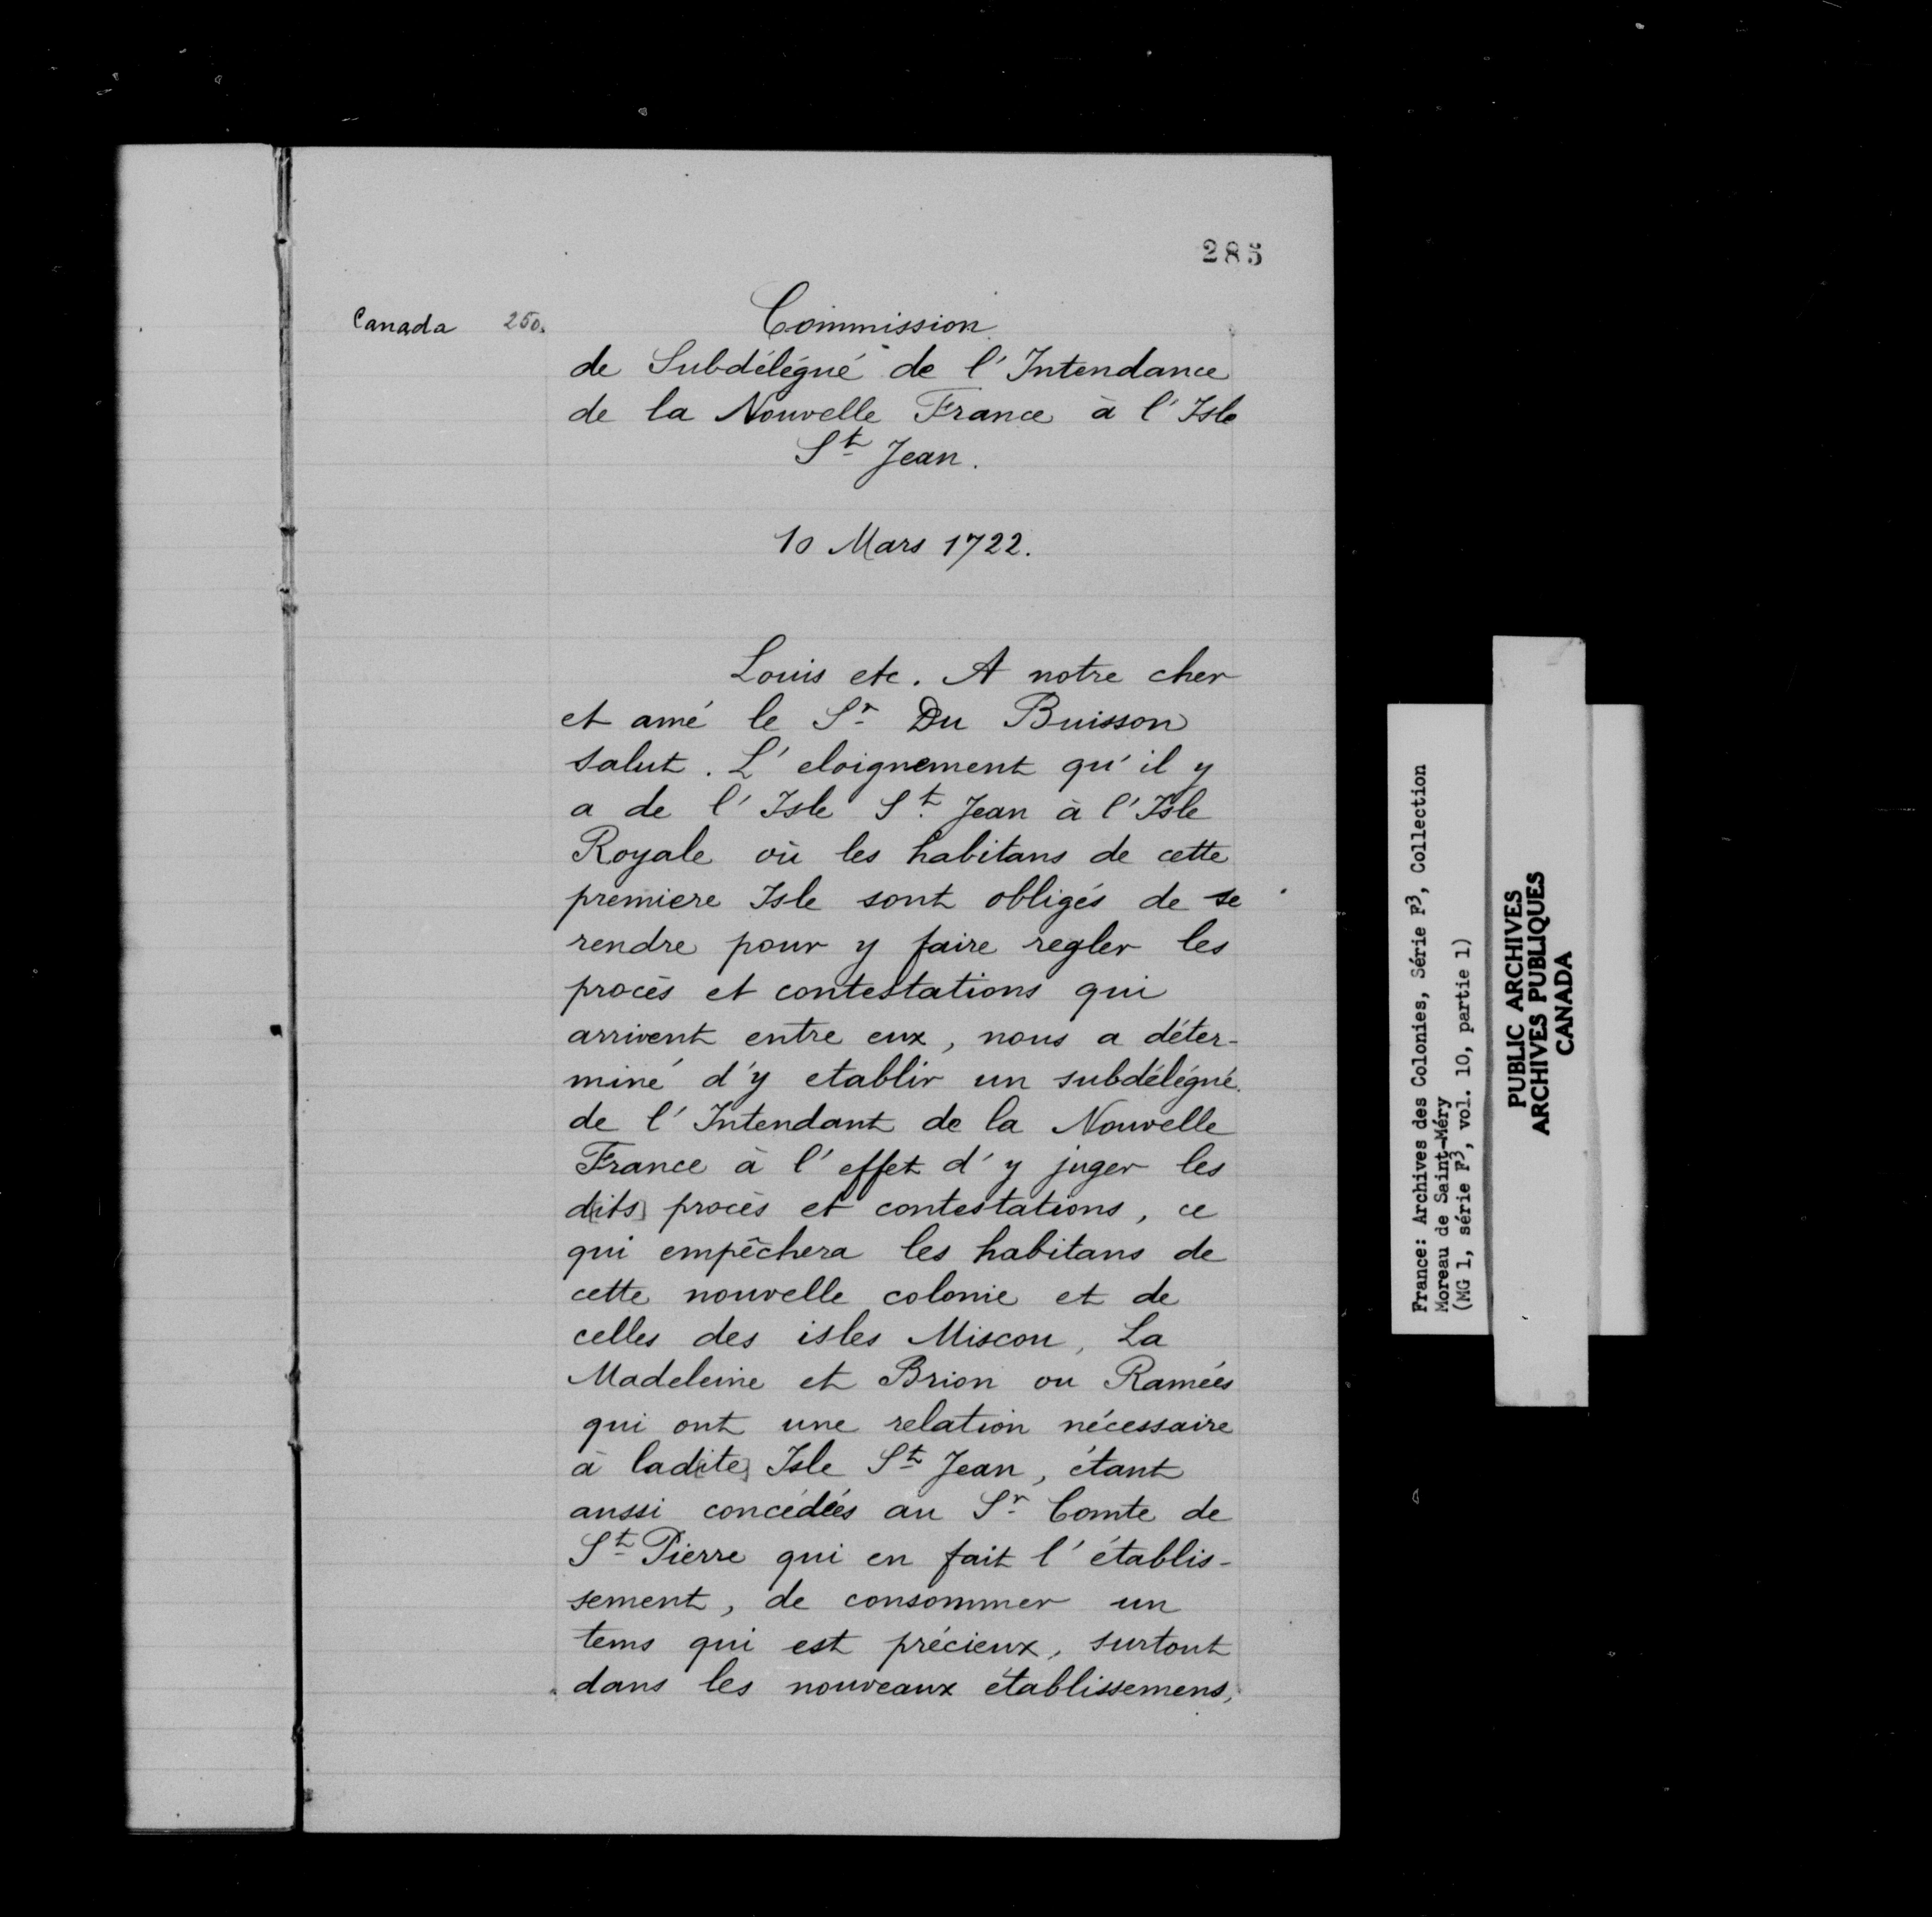 285
Canada 250.
Commission
de Subdélégué de l'Intendance
de la Nouvelle France à l'Isle
St Jean.
10 Mars 1722.
Louis etc. A notre cher
et amé le Sr Du Buisson
salut. L'eloignement qu'il y
a de l'Isle St Jean à l'Isle
Royale où les habitans de cette
premiere Isle sont obligés de se
rendre pour y faire regler les
procès et contestations qui
arrivent entre eux, nous a déter-
miné d'y etablir un subdélégué
de l'Intendant de la Nouvelle
France à l'effet d'y juger les
d[its] procès et contestations, ce
qui empêchera les habitans de
cette nouvelle colonie et de
celles des isles Miscou, La
Madeleine et Brion ou Ramées
qui ont une relation nécessaire
à lad[ite] Isle St Jean, étant
aussi concédées au Sr Comte de
St Pierre qui en fait l'établis-
sement, de consommer un
tems qui est précieux, surtout
dans les nouveaux établissemens,
France: Archives des Colonies, Série F3, Collection
Moreau de Saint-Méry
(MG 1, série F3, vol. 10, partie 1)
PUBLIC ARCHIVES
ARCHIVES PUBLIQUES
CANADA